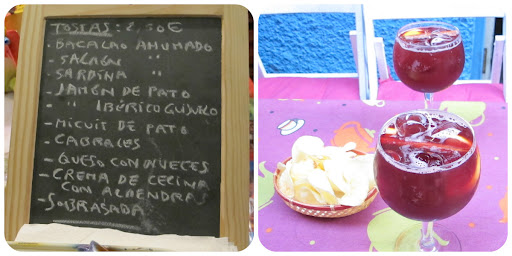 TOSTAS: 2,50€
- BACALAO AHUMADO
- SALMÓN "
- SARDINA "
- JAMÓN DE PATO
- " IBÉRICO GUIJUELO
- MICUIT DE PATO
- CABRALES
- QUESO CON NUECES
- CREMA DE CECINA
CON ALMENDRA
- SOBRASADA